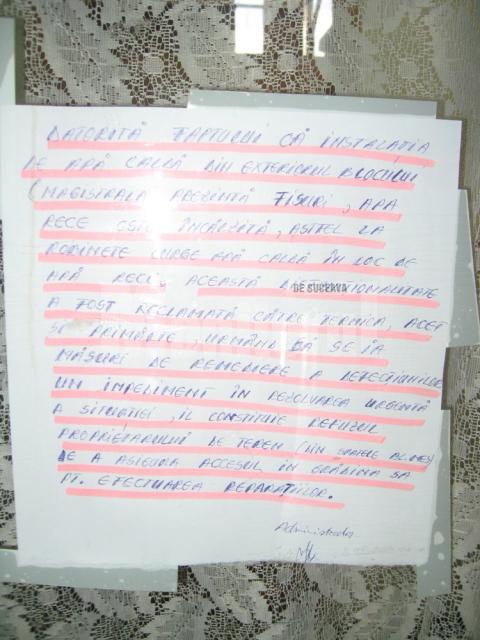 DATORITĂ FAPTULUI CĂ INSTALAȚIA
DE APĂ CALDĂ DIN EXTERIORUL BLOCULUI
(MAGISTRALA PREZINTĂ FISURI, APA
RECE ESTE ÎNCĂLZITĂ, ASTFEL LA
ROBINETE CURGE APĂ CALDĂ ÎN LOC DE
APĂ RECE, ACEASTĂ DISFUNCȚIONALITATE
DE SUCEAVA
A FOST RECLAMATĂ CĂTRE TERMICA, ACET
ȘI PRIMĂRIE, URMÂND SĂ SE IA
MĂSURI DE REMEDIERE A DEFECȚIUNILOR
UN IMPEDIMENT ÎN REZOLVAREA URGENTĂ
A SITUAȚIEI, ÎL CONSTITUIE REFUZUL
PROPRIETARULUI DE TEREN (DIN SPATELE BLOCULUI)
DE A ASIGURA ACCESUL ÎN GRĂDINA SA
PT. EFECTUAREA REPARAȚIILOR.
Administrator